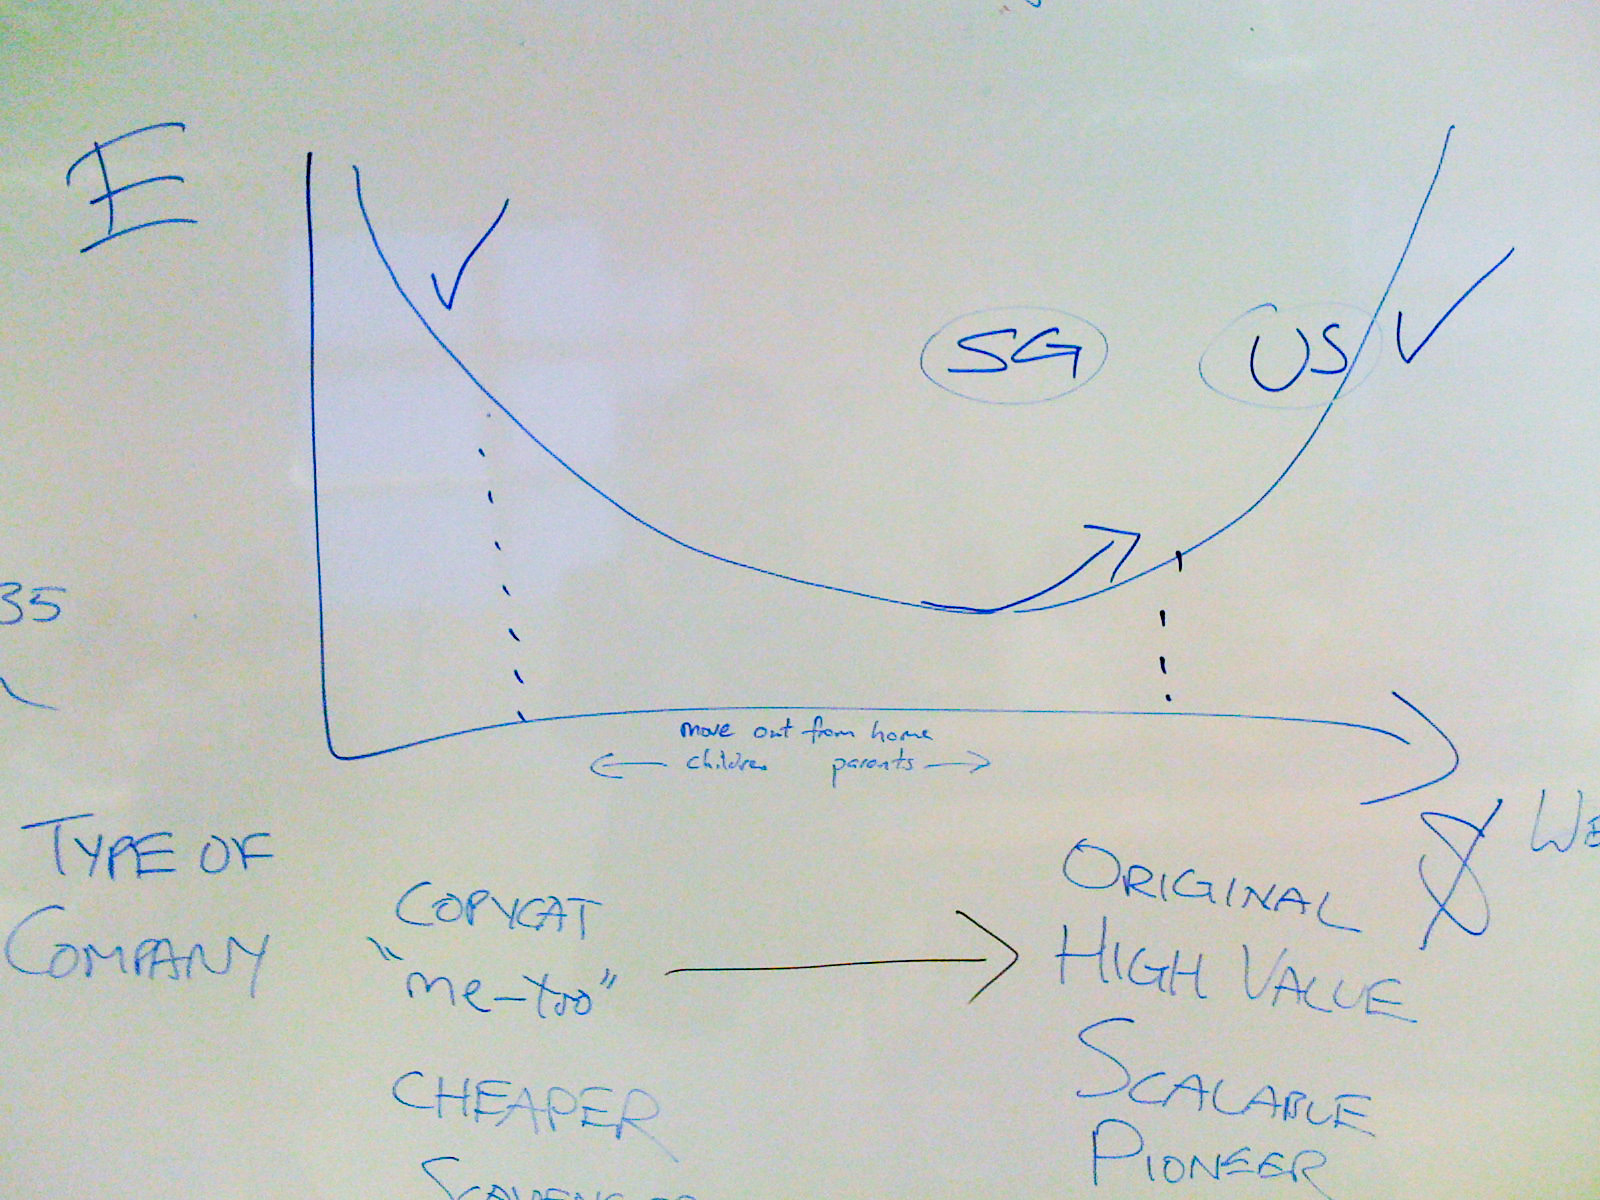 E
SG US
35
move out from home
children parents
$
TYPE OF
COMPANY
COPYCAT
"me-too"
CHEAPER
ORIGINAL
HIGH VALUE
SCALABLE
PIONEER